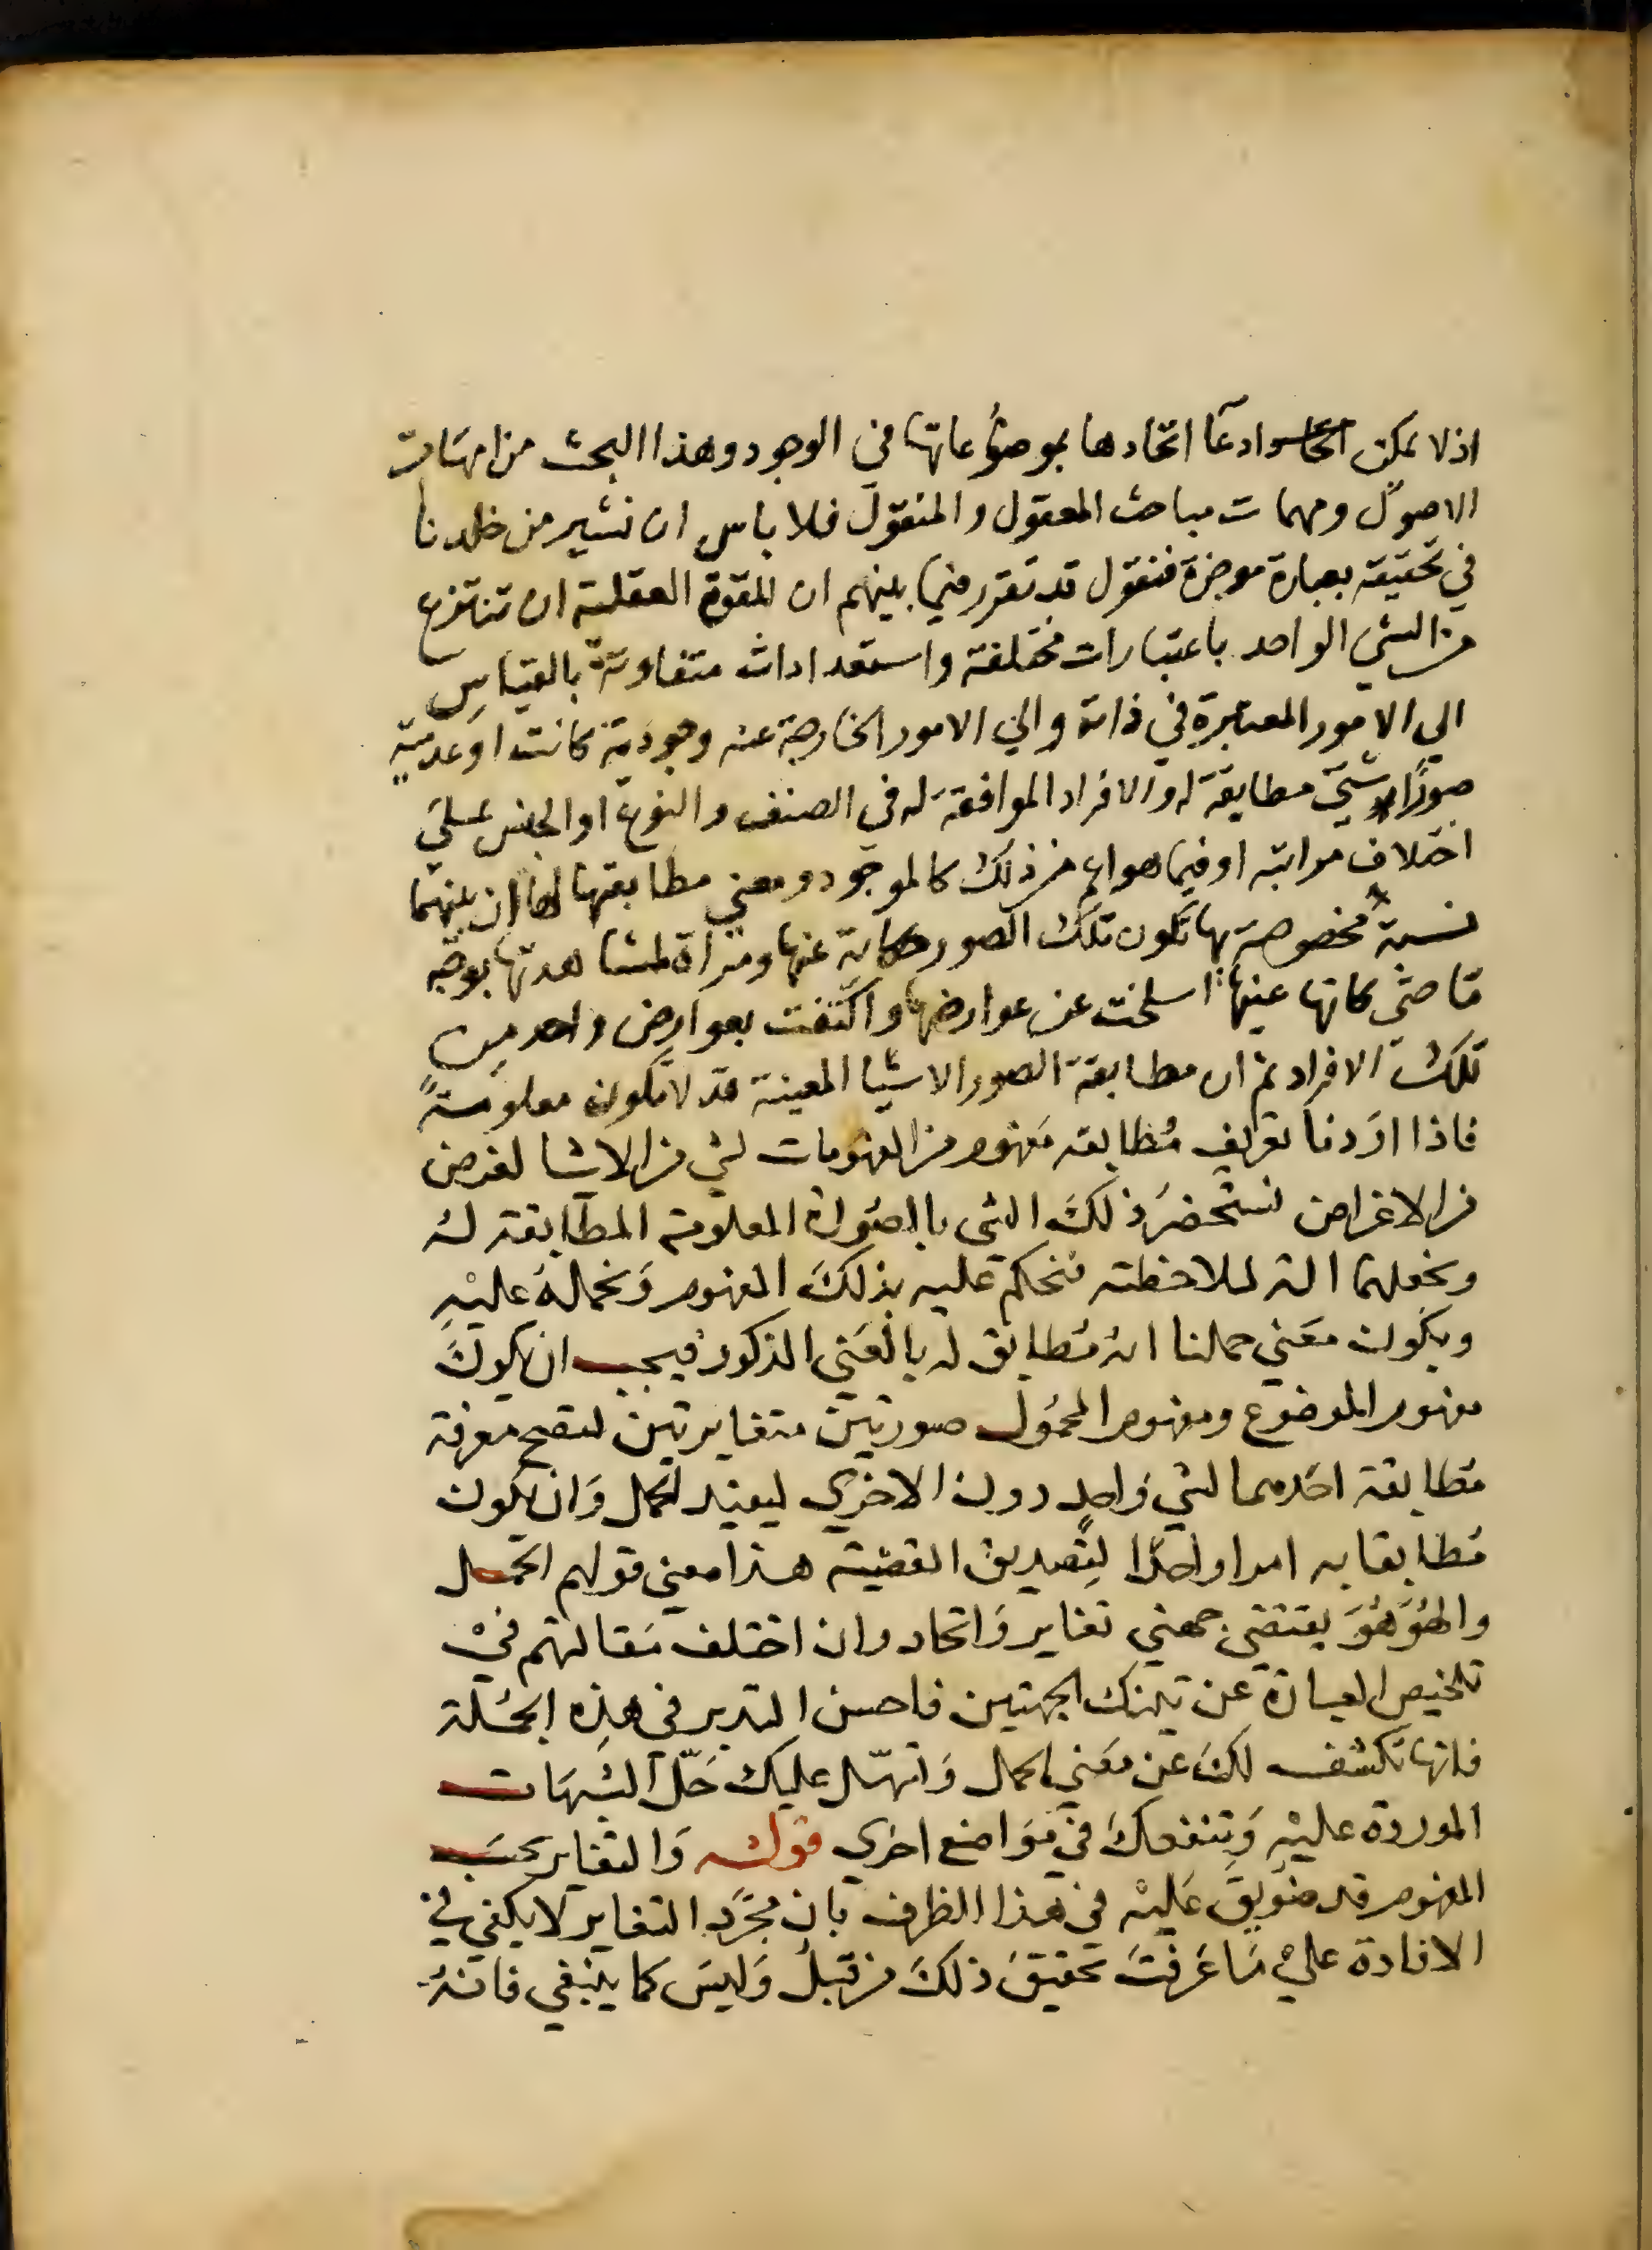 اذ لا يمكن ادعآ اتحادها بموضوعاتها في الوجود وهذا البحث من امهات
الاصول ومهمات مباحث المعقول والمنقول فلا باس ان نشير من خلدنا
في تحقيقه بعبارة موجزة فنقول قد تقرر فيما بينهم ان للقوة العقلية ان تنتزع
من الشي الواحد باعتبارات مختلفة واستعدادات متفاوتة بالقياس
الي الامور المعتبرة في ذاته والي الامور الخارجة عنه وجودية كانت او عدمية
صورًا شتي مطابقة له والافراد الموافقة له في الصنف والنوع او الجنس علي
اختلاف مراتبه او فيما هو اعم من ذلك كالموجود ومعني مطابقتها لها ان بينهما
نسبة مخصوصة بها تكون تلك الصور حكاية عنها ومراة لمشاهدتها بوجه
ما حتى كانها عينها انسلخت عن عوارضها واكتنفت بعوارض واحد من
تلك الافراد ثم ان مطابقة الصور الاشيا المعينة قد لا تكون معلومةً
فاذا اردنا تعريف مُطابقه مَفهوم من المفهومات لشي من الاشيا لغرض
من الاغراض نستحضرُ ذلكَ الشي بالصُورة المعلومة المطابقة لهُ
ونجعلها الة لملاحظته فنحكم عليه بذلكَ المفهوم وَنحملهُ عليهِ
ويكون مَعني حملنا انهُ مُطابق له بالمَعني المذكور فيجب ان يكونَ
مفهوم الموضوع ومفهوم المحمُول صورتين متغايرتين لتصح معرفة
مُطابقة احَدهما لشي وَاحد دون الاخري ليفيد الحمل وَان يكون
مُطابقا به امرا واحدًا لِتصديق القضية هذا معني قولهم الحمل
والهُوَهُوَ يقتضي جهتي تغاير وَاتحاد وان اختلف مَقالتهم فيْ
تلخيص العبارة عن تينك الجهتين فاحسن التدبر في هذِه الجُملة
فانها تكشف لكَ عن مَعني الحمل وَتسهّل عليك حَلّ الشبهَات
الموردة عليْهِ وَتنفعكَ في مَوَاضع اخري قوله وَالتغاير بحسَب
المفهوم قد ضويقَ عَليْه في هذا الظرف بان مجرّد التغاير لا يكفي في
الافادة عليْ مَا عَرفتَ تحقيقَ ذلكَ من قبلُ وَليسَ كما ينبغي فانهُ